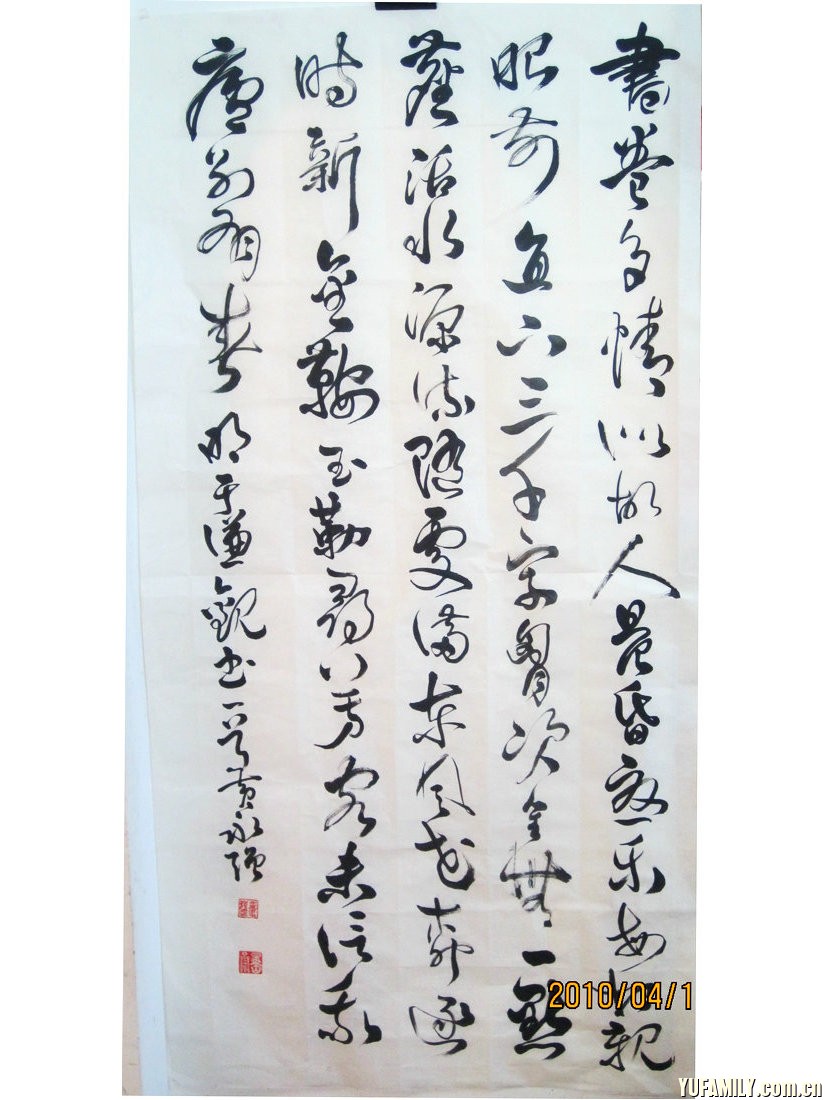 書卷多情似故人晨昏憂樂每相親
眼前直下三千字胸次全無一點
塵活水源流隨處滿東風花柳逐
時新金鞍玉勒尋芳客未信我
廬别有春 明于謙觀书一首 黄永强
2010/04/1
YUFAMILY.com.cn